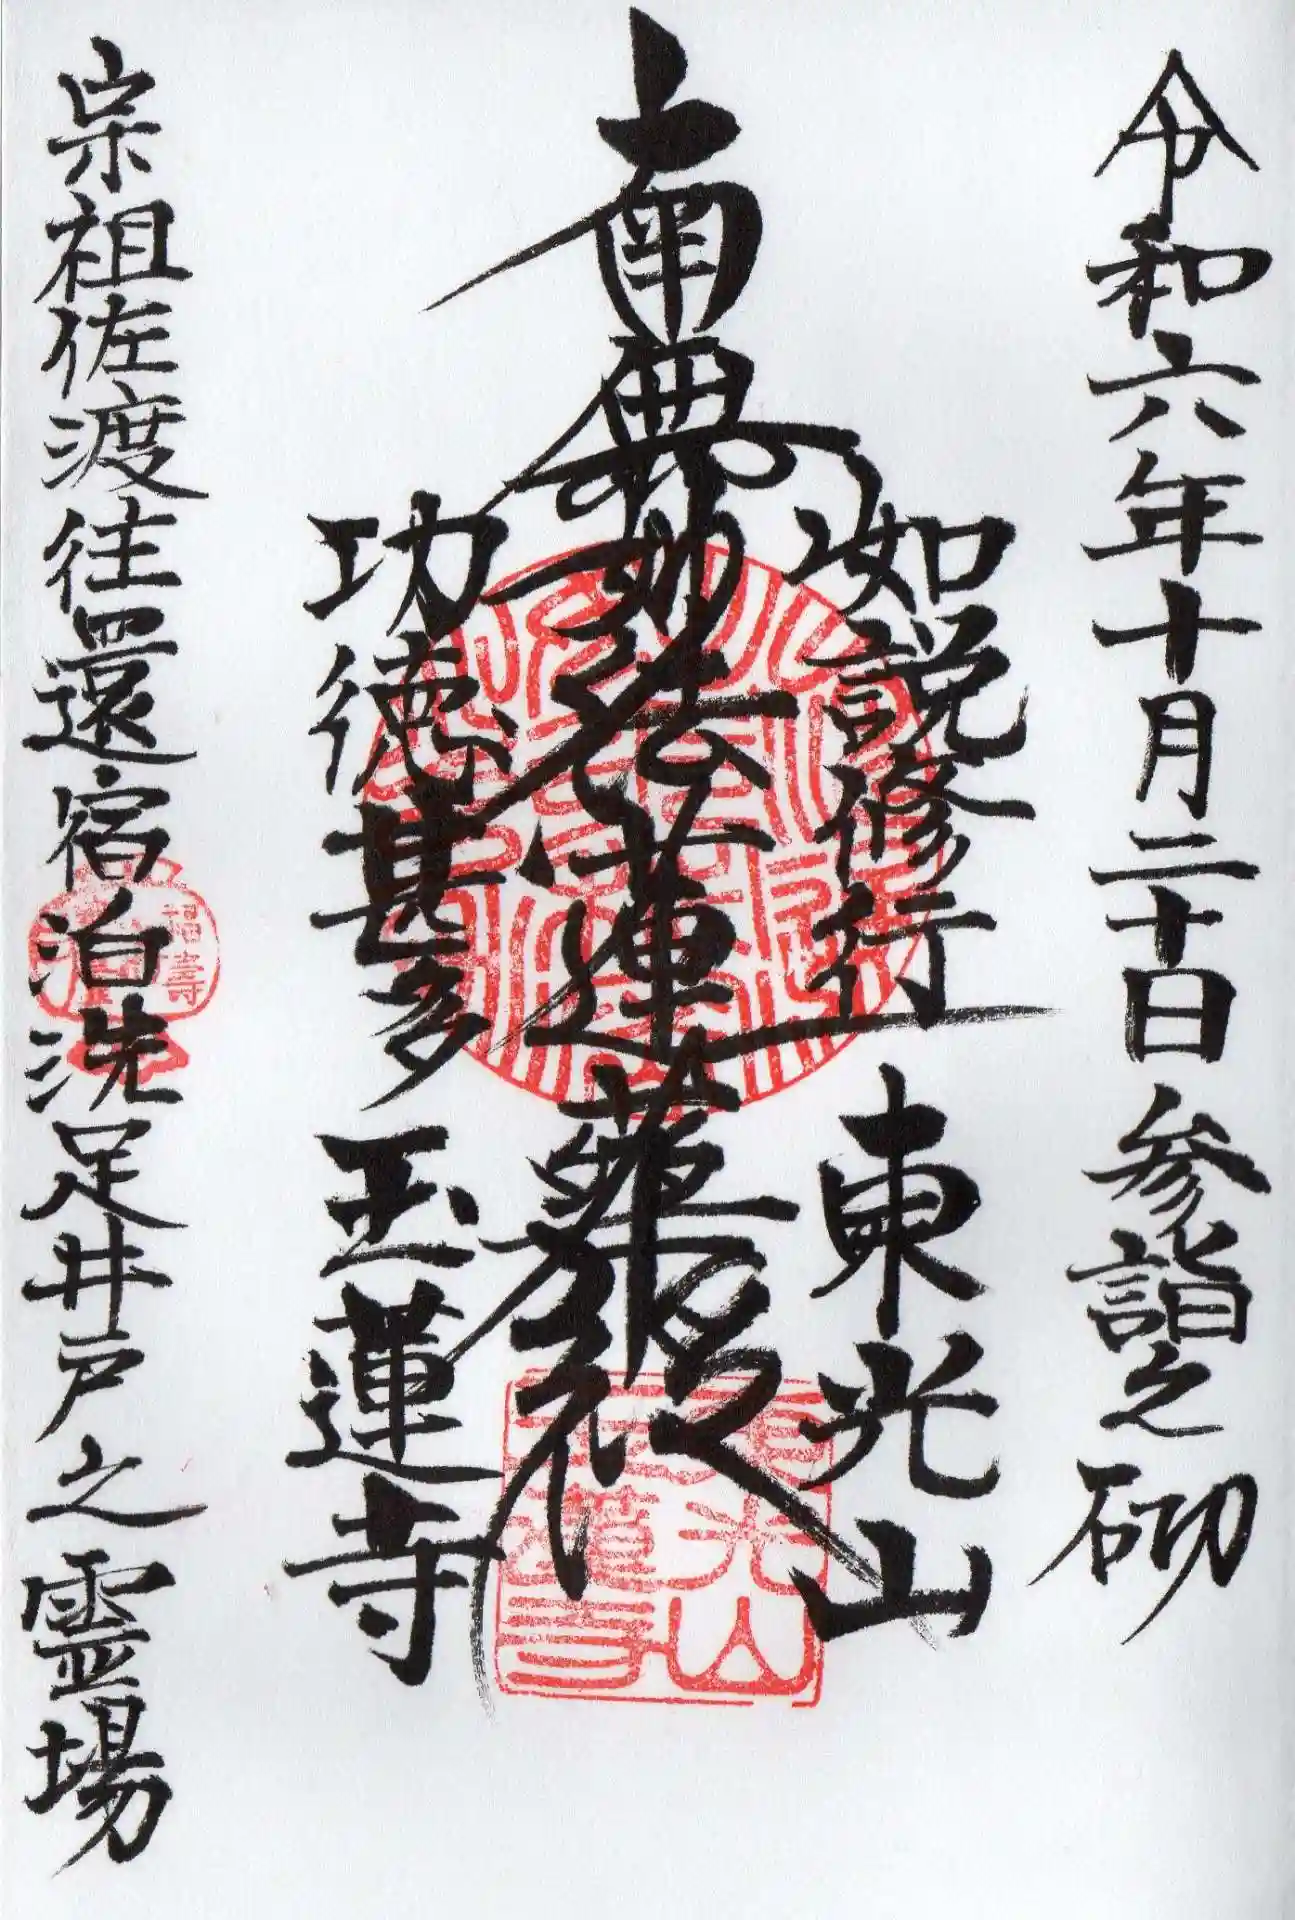 令和六年十月二十日参詣之砌
如説修行 東光山
南無妙法蓮華経
功徳甚多 玉蓮寺
宗祖佐渡往還宿泊洗足井戸之霊場
東光山
玉蓮寺
福壽